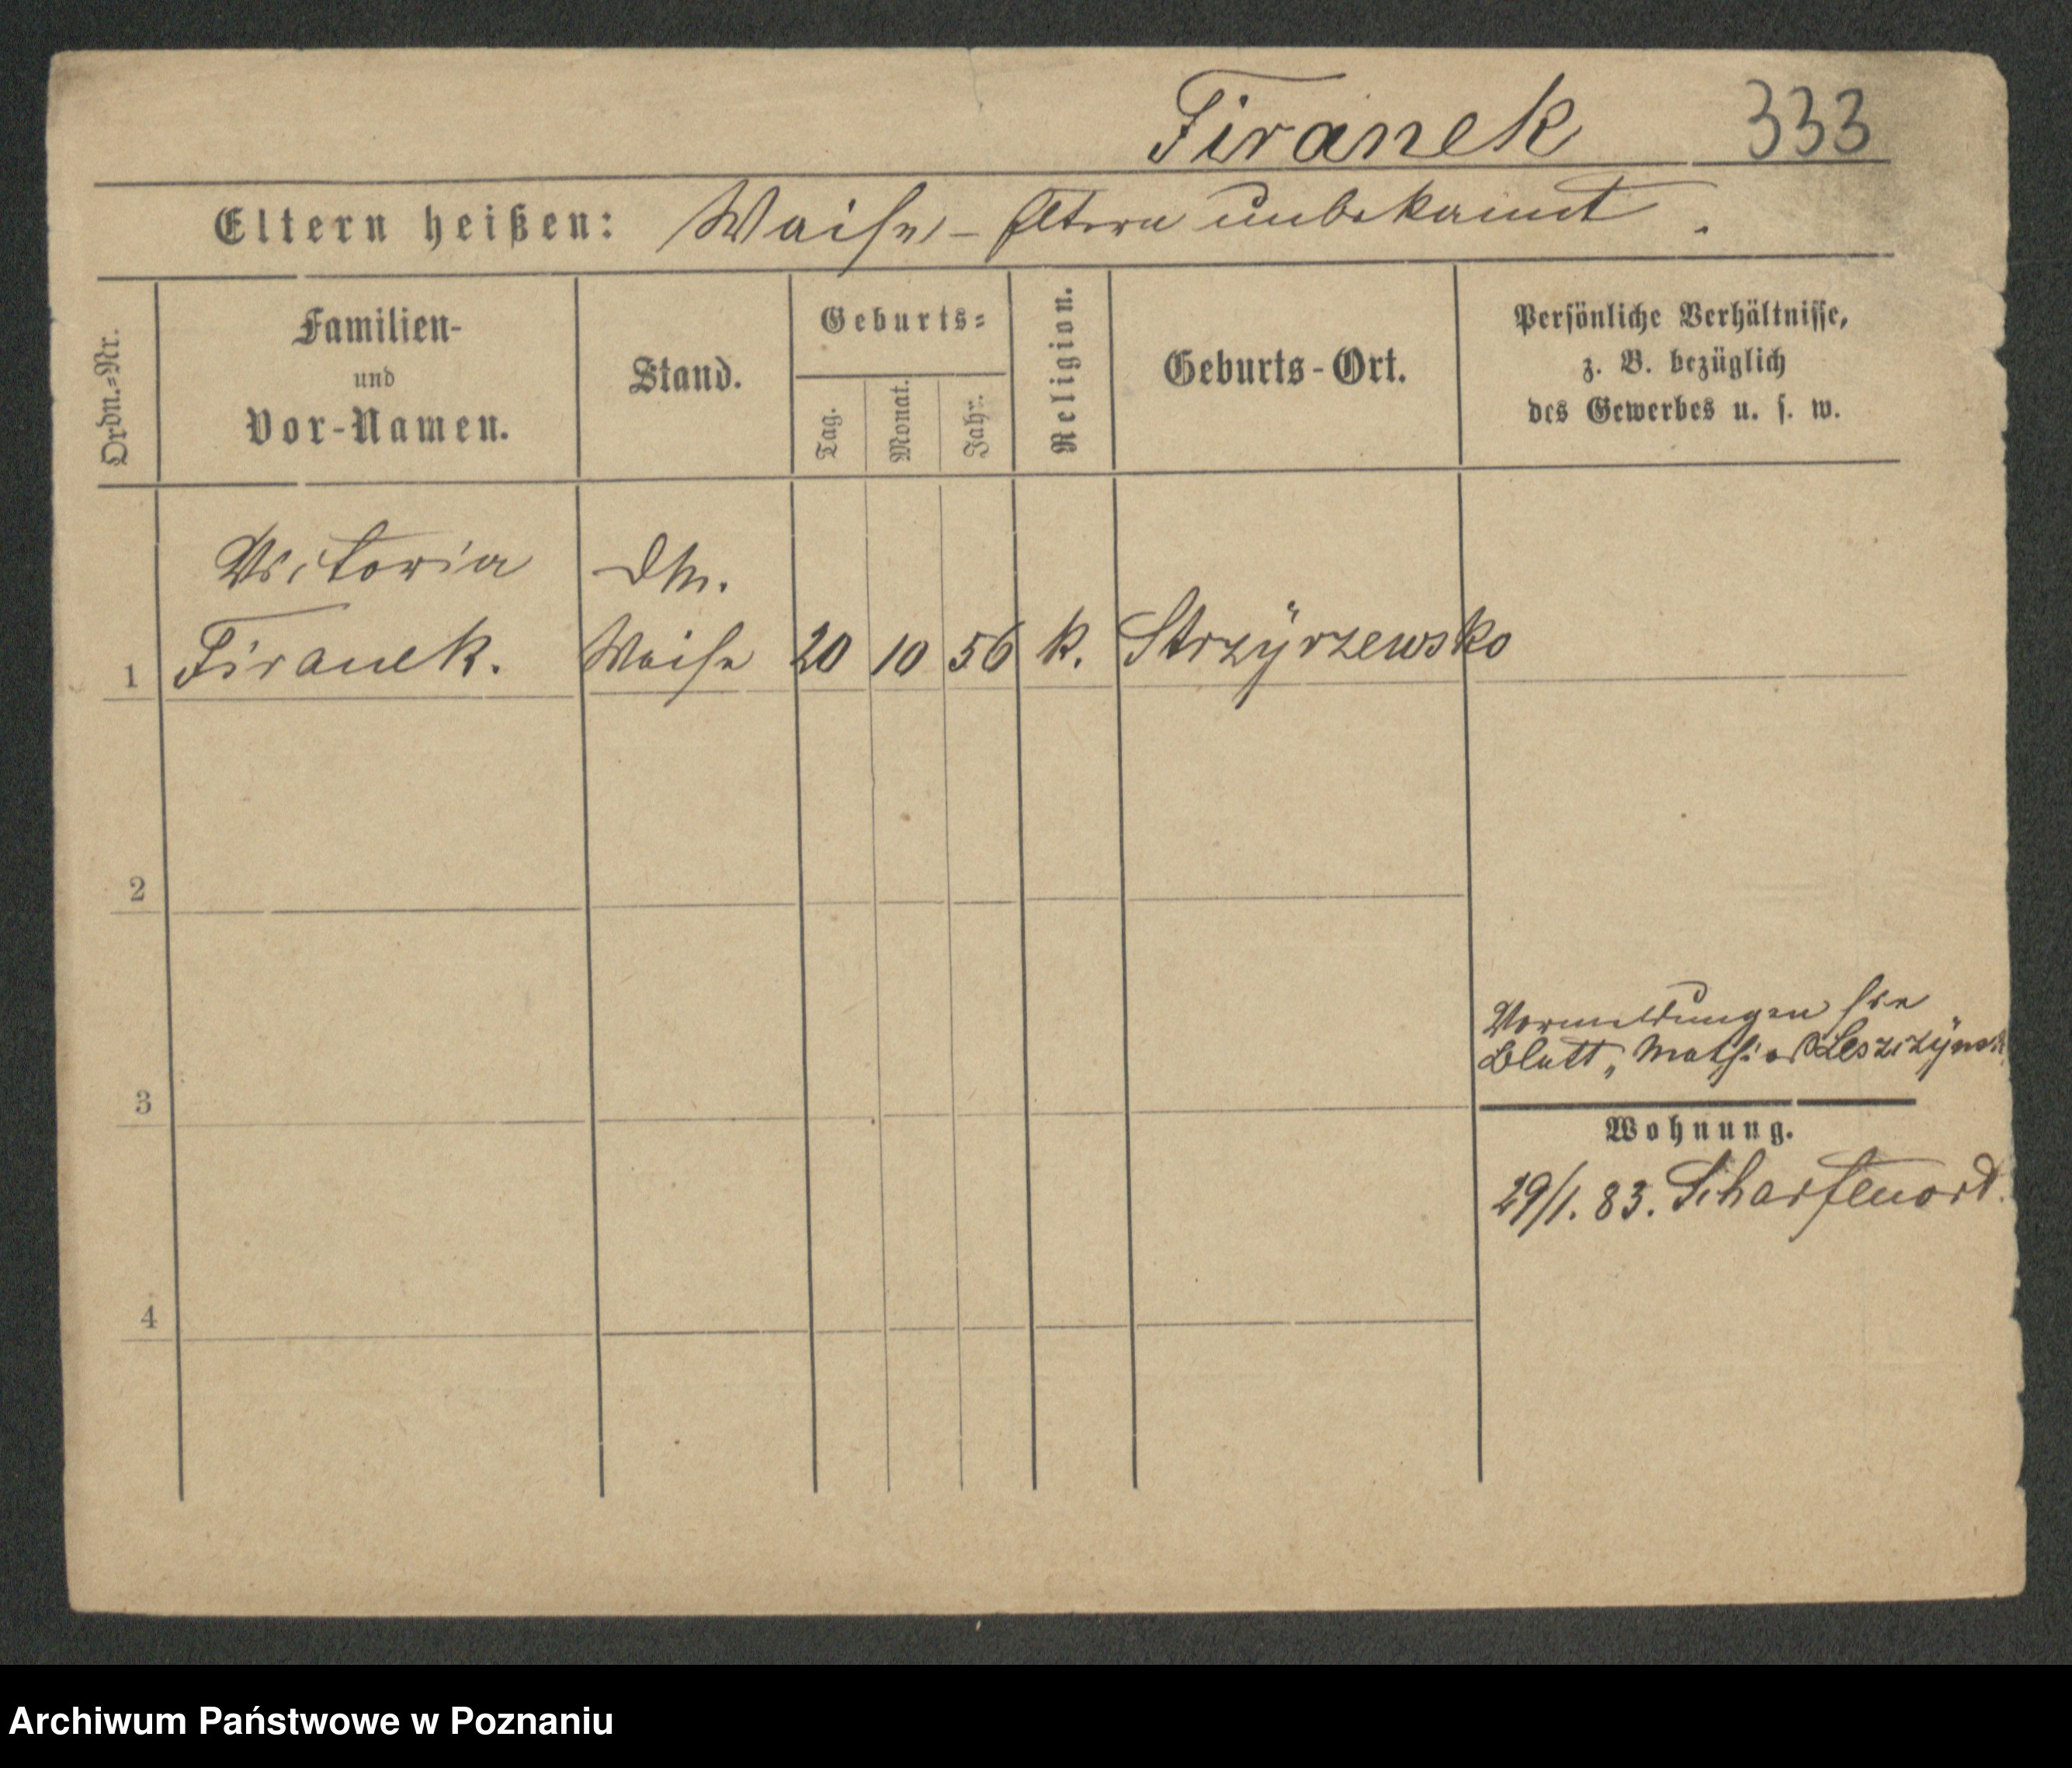 Firanek 333
Eltern heißen: Waise - Eltern unbekannt.
Ordn.=Nr.
Familien-
und
Vor-Namen.
Stand.
Geburts=
Tag.
Monat.
Jahr.
Religion.
Geburts-Ort.
Persönliche Verhältnisse,
z. B. bezüglich
des Gewerbes u. s. w.
Victoria
1 Firanek. Waise 20 10 56 k. Strzÿrzewsko
2
3
Vormeldungen sie
Blatt
Wohnung.
29/1. 83. Scharfenort.
4
Archiwum Państwowe w Poznaniu